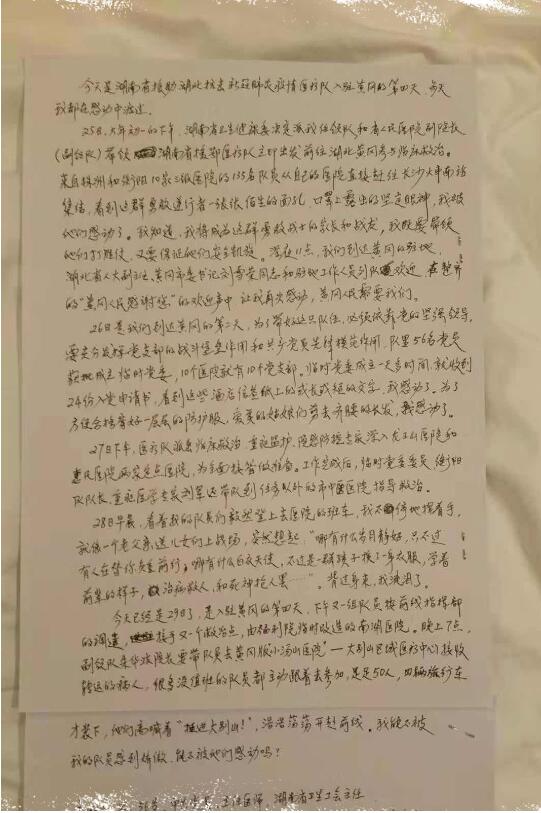 今天是湖南省援助湖北抗击新冠肺炎疫情医疗队入驻黄冈的第四天，每天
我都在感动中渡过。
25日，大年初一的下午，湖南省卫生健康委决定派我任领队和省人民医院副院长
(副领队)带领湖南省援鄂医疗队立即出发前往湖北黄冈参与临床救治。
来自株洲和衡阳10家三级医院的135名队员从自己的医院直接赶往长沙火车南站
集结，看到这群勇敢逆行者一张张陌生的面孔，口罩上露出的坚定眼神，我被
他们感动了。我知道，我将成为这群勇敢战士的家长和战友，我既要带领
他们打胜仗，又要保证他们安全凯旋。深夜11点，我们到达黄冈的驻地，
湖北省人大副主任、黄冈市委书记刘雪荣同志和驻地工作人员列队欢迎，在整齐
的“黄冈人民感谢您”的欢迎声中，让我再次感动，黄冈人民需要我们。
26日是我们到达黄冈的第二天，为了带好这只队伍，必须依靠党的坚强领导，
要充分发挥党支部的战斗堡垒作用和共产党员先锋模范作用，队里56名党员
成立临时党委，10个医院就有10个党支部。临时党委成立一天多时间，就收到
24份入党申请书，看到这些酒店信笺纸上的或长或短的文字，我感动了。为了
方便会穿着好一层层的防护服，爱美的姑娘们剪去齐腰的长发，我感动了。
27日下午，医疗队派出临床救治、重症监护、院感防控专家深入龙王山医院和
惠民医院两家定点医院，为全面接管做准备。工作完成后，临时党委委员、衡阳
队队长、重症医学专家刘军还带队到任务以外的市中医医院指导救治。
28日早晨，看着我的队员们毅然登上去医院的班车，我不停地挥着手，
就像一个老父亲送儿女们上战场，突然想起，“哪有什么岁月静好，只不过
有人在替你负重前行；哪有什么白衣天使，不过是一群孩子换了一身衣服，学着
前辈的样子，治病救人，和死神抢人罢……”。背过身来，我流泪了。
今天已经是29日了，是入驻黄冈的第四天，下午又一组队员按前线指挥部
的调遣，接手又一个救治点，由福利院临时改造的南湖医院。晚上7点，
副领队朱华波院长要带队员去黄冈版小汤山医院——大别山区域医疗中心接收
转运的病人，很多没值班的队员都主动跟着去参加，足足50人，四辆旅行车
才装下，他们高喊着“挺进大别山！”，浩浩荡荡开赴前线。我能不被
我的队员感到骄傲，能不被他们感动吗？
主任医师，湖南省卫生工会主任